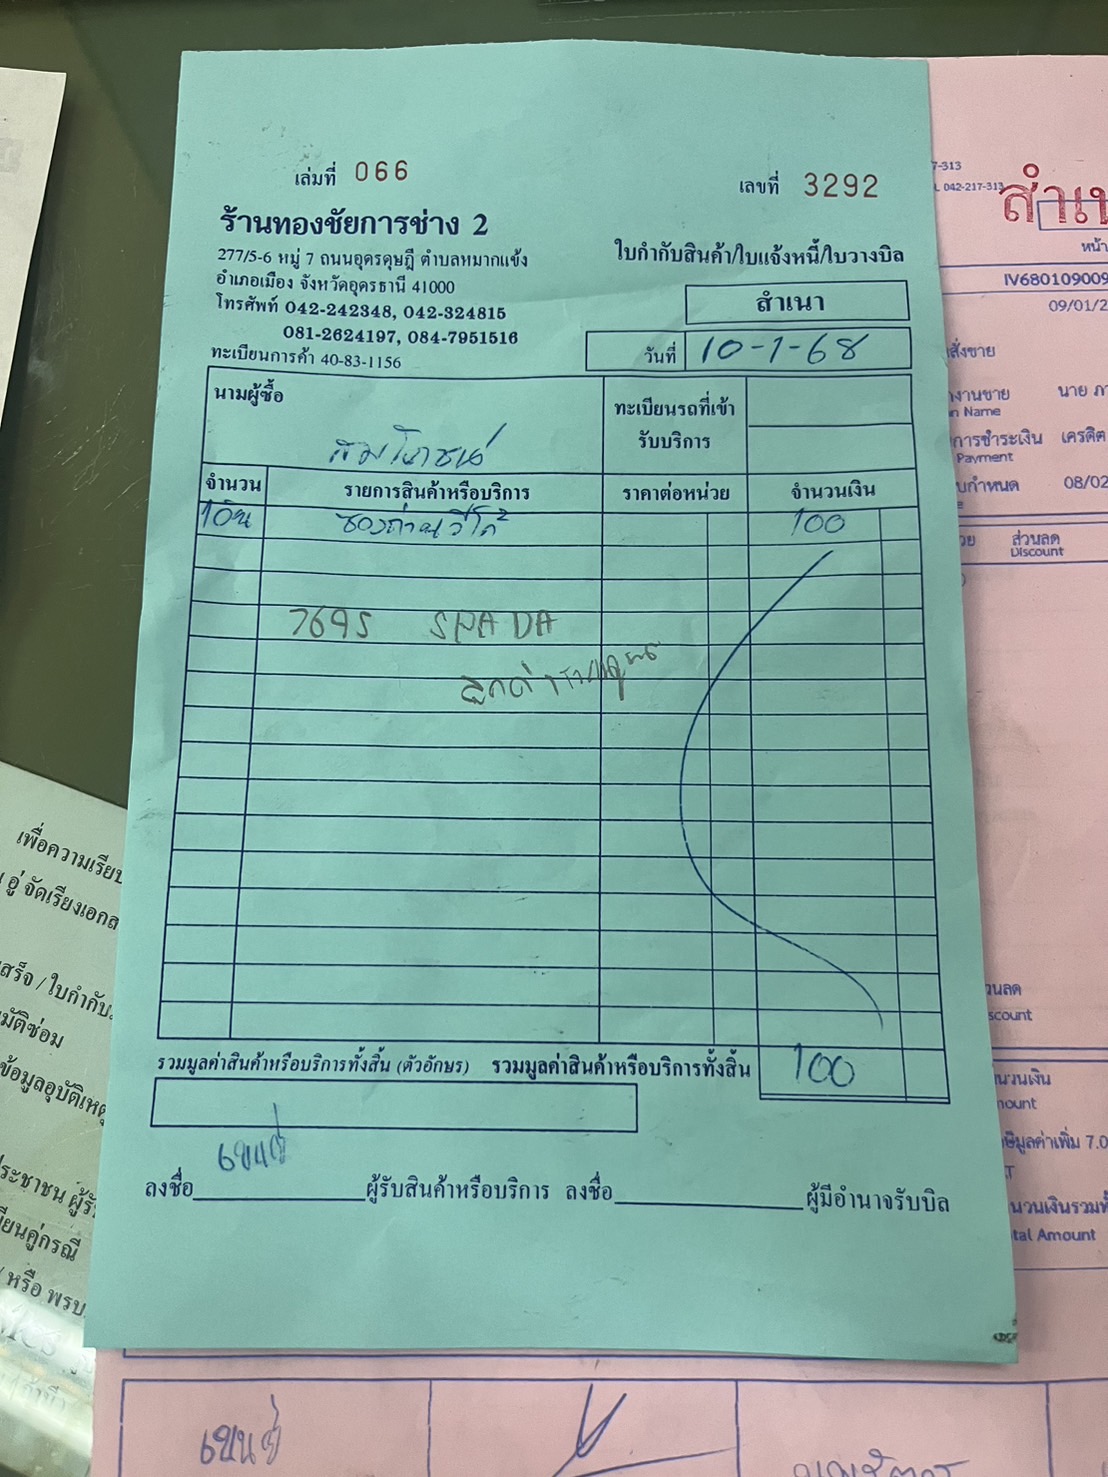 เล่มที่ 066
เลขที่ 3292
ร้านทองชัยการช่าง 2
277/5-6 หมู่ 7 ถนนอุดรดุษฎี ตำบลหมากแข้ง
อำเภอเมือง จังหวัดอุดรธานี 41000
โทรศัพท์ 042-242348, 042-324815
081-2624197, 084-7951516
ทะเบียนการค้า 40-83-1156
ใบกำกับสินค้า/ใบแจ้งหนี้/ใบวางบิล
สำเนา
วันที่ 10-1-68
นามผู้ซื้อ
ทะเบียนรถที่เข้า
รับบริการ
จำนวน รายการสินค้าหรือบริการ ราคาต่อหน่วย จำนวนเงิน
100
7695 SPADA
รวมมูลค่าสินค้าหรือบริการทั้งสิ้น (ตัวอักษร) รวมมูลค่าสินค้าหรือบริการทั้งสิ้น 100
ลงชื่อ ผู้รับสินค้าหรือบริการ ลงชื่อ ผู้มีอำนาจรับบิล
7-313
042-217-313
หน้า
IV680109009
09/01/2
สั่งขาย
งานขาย นาย
Name
การชำระเงิน เครดิต
Payment
กำหนด 08/02
ส่วนลด
Discount
วนลด
scount
นวนเงิน
mount
ษีมูลค่าเพิ่ม 7.0
นวนเงินรวมทั้
tal Amount
เพื่อความเรีย
อู่ จัดเรียงเอกส
สร็จ / ใบกำกับ
มัติซ่อม
ข้อมูลอุบัติเหตุ
ระชาชน ผู้รั
บียนคู่กรณี
หรือ พรบ.